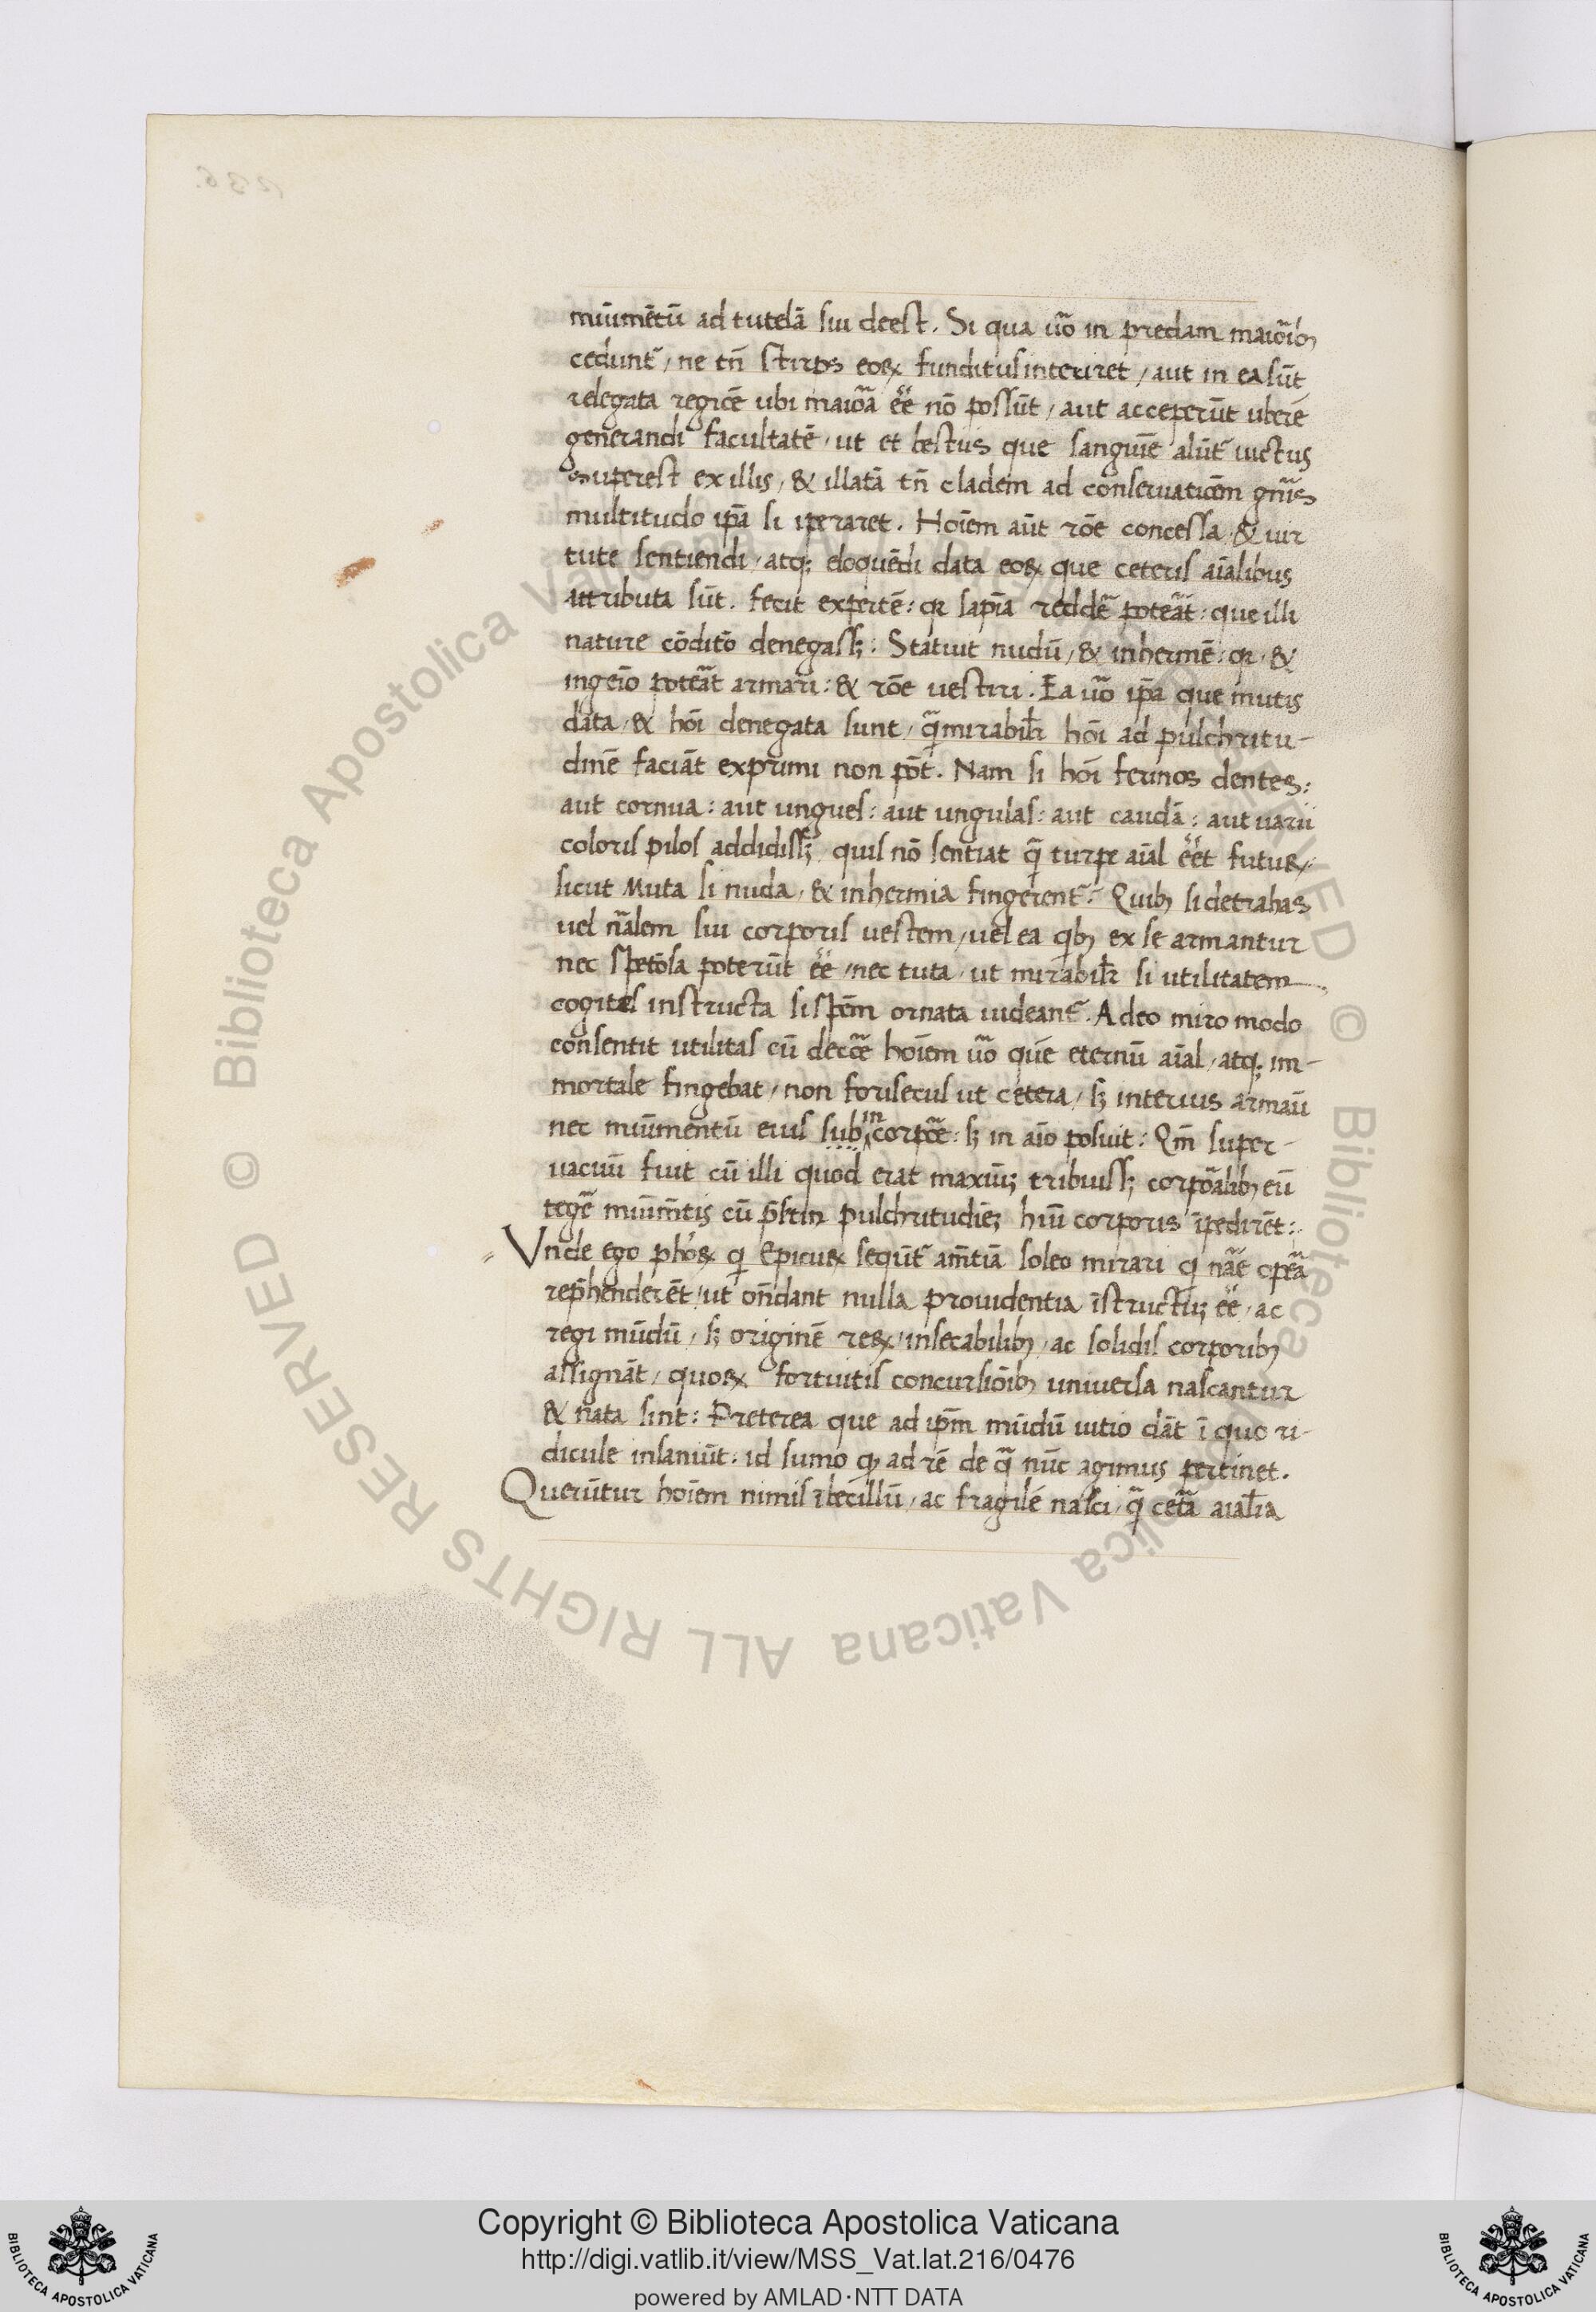 muĩmẽtũ ad tutelã sui deest. Si qua ũo in predam maioĩbȝ
cedunt̃, ne tñ stirps eoꝝ funditus interiret, aut in ea sũt
relegata regiõe ubi maioã ẽe nõ possũt, aut acceperũt uberẽ
generandi facultatẽ, ut et bestiis que sanguĩe alũt̃ uictus
superest ex illis, & illatã tñ cladem ad conseruatiõem gñis
multitudo ip̃a suꝑaret. Hoĩem aũt rõe concessa & uir
tute sentiendi, atqȝ eloquẽdi data eoꝝ que ceteris aĩalibus
attributa sũt. fecit expertẽ: qꝛ sapĩa reddẽ poteãt: que illi
nature cõditõ denegassȝ: Statuit nudũ, & inhermẽ: qꝛ, &
ingeĩo poteãt armari: & rõe uestiri. Ea ũo ip̃a que mutis
data, & hoĩ denegata sunt, q̃mirabilr̃ hoĩ ad pulchritu-
dinẽ faciãt exprimi non põt. Nam si hoĩ ferinos dentes:
aut cornua: aut ungues: aut ungulas: aut caudã: aut uarii
coloris pilos addidissȝ, quis nõ sentiat q̃ turpe aĩal ẽet futuꝝ,
sicut Muta si nuda, & inhermia fingerent̃. Quibȝ si detrahas
uel ñalem sui corporis uestem, uel ea qibȝ ex se armantur
nec spetiosa poterũt ẽe, nec tuta, ut mirabilr̃ si utilitatem
cogites instructa si spẽm ornata uideant̃. Adeo miro modo
consentit utilitas cũ decoẽ hoĩem ũo que eternũ aĩal, atqȝ im-
mortale fingebat, non forisecus ut cetera, sȝ interius armaũ
nec muĩmentũ eius sub in corpoẽ: sȝ in aĩo posuit: Qm̃ super-
uacuũ fuit cũ illi quod erat maximũȝ tribuissȝ corpoãlibȝ eũ
tegẽ muĩm̃tis cũ p̃sertĩ pulchritudiẽȝ hũi corporis ĩpedirẽt:
Vnde ego pho꜀ꝝ qi Epicuꝝ sequũt̃ am̃tiã soleo mirari qi nãe opeã
rep̃henderẽt, ut oñdant nulla prouidentia ĩstructũȝ ẽe, ac
regi mũdũ, sȝ originẽ reꝝ, insecabilibȝ, ac solidis corporibȝ
assignãt, quoꝝ fortuitis concursiõibȝ uniuersa nascantur
& nata sint: Preterea que ad ip̃m mũdũ uitio dãt ĩ quo ri-
dicule insaniũt: id sumo qđ ad rẽ de q̃ nũc agimus pertinet.
Querũtur hoĩem nimis ĩbecillũ, ac fragilẽ nasci, q̃ cetã aĩalia
Copyright © Biblioteca Apostolica Vaticana
http://digi.vatlib.it/view/MSS_Vat.lat.216/0476
powered by AMLAD·NTT DATA
BIBLIOTECA APOSTOLICA VATICANA
BIBLIOTECA APOSTOLICA VATICANA
© Biblioteca Apostolica Vaticana ALL RIGHTS RESERVED © Biblioteca Apostolica Vaticana ALL RIGHTS RESERVED